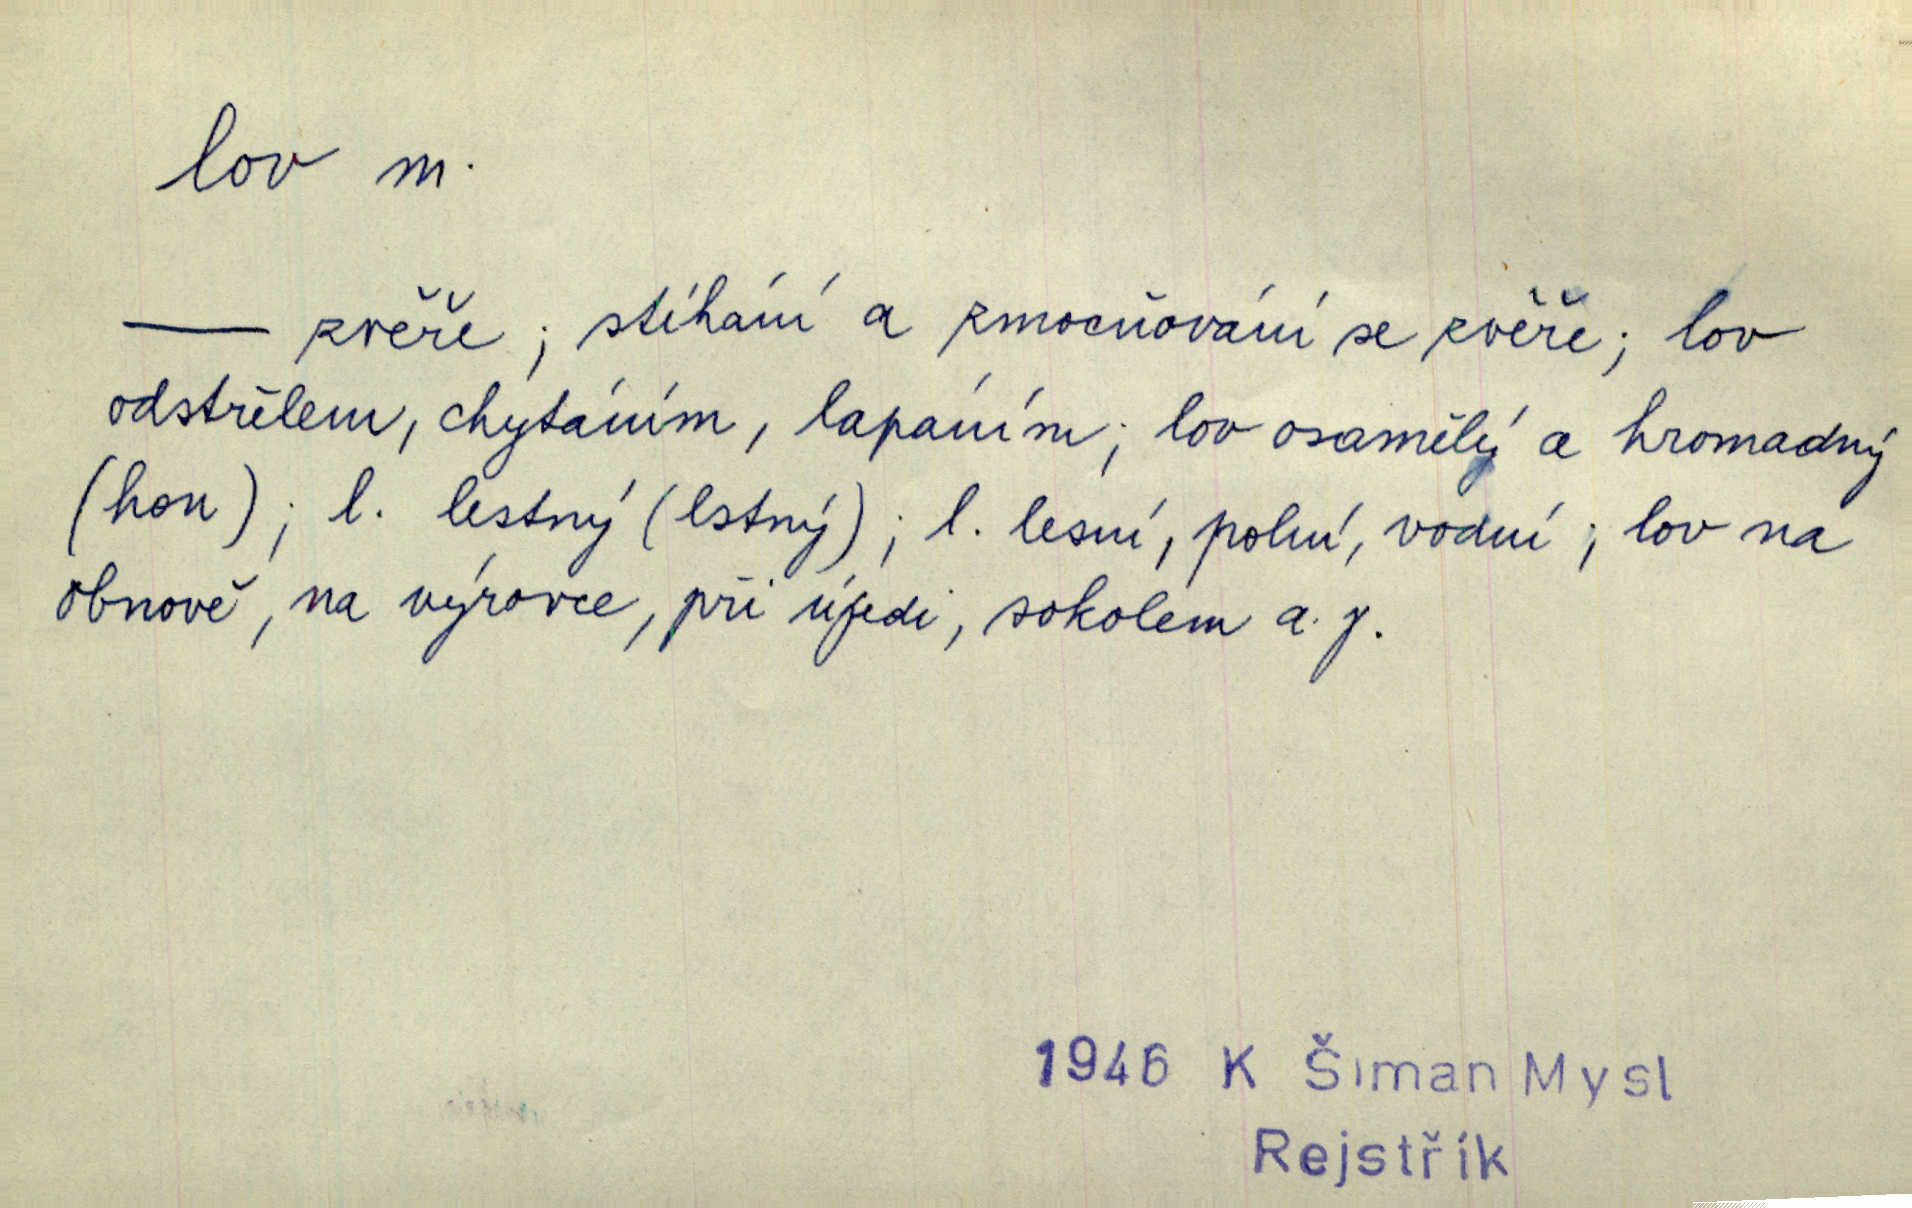 lov m.
— zvěře; stíhání a zmocňování se zvěře; lov
odstřelem, chytáním, lapáním; lov osamělý a hromadný
(hon); l. lestný (lstný); l. lesní, polní, vodní; lov na
obnově, na výrovce, při újedi, sokolem a. j.
1946 K Šiman Mysl
Rejstřík